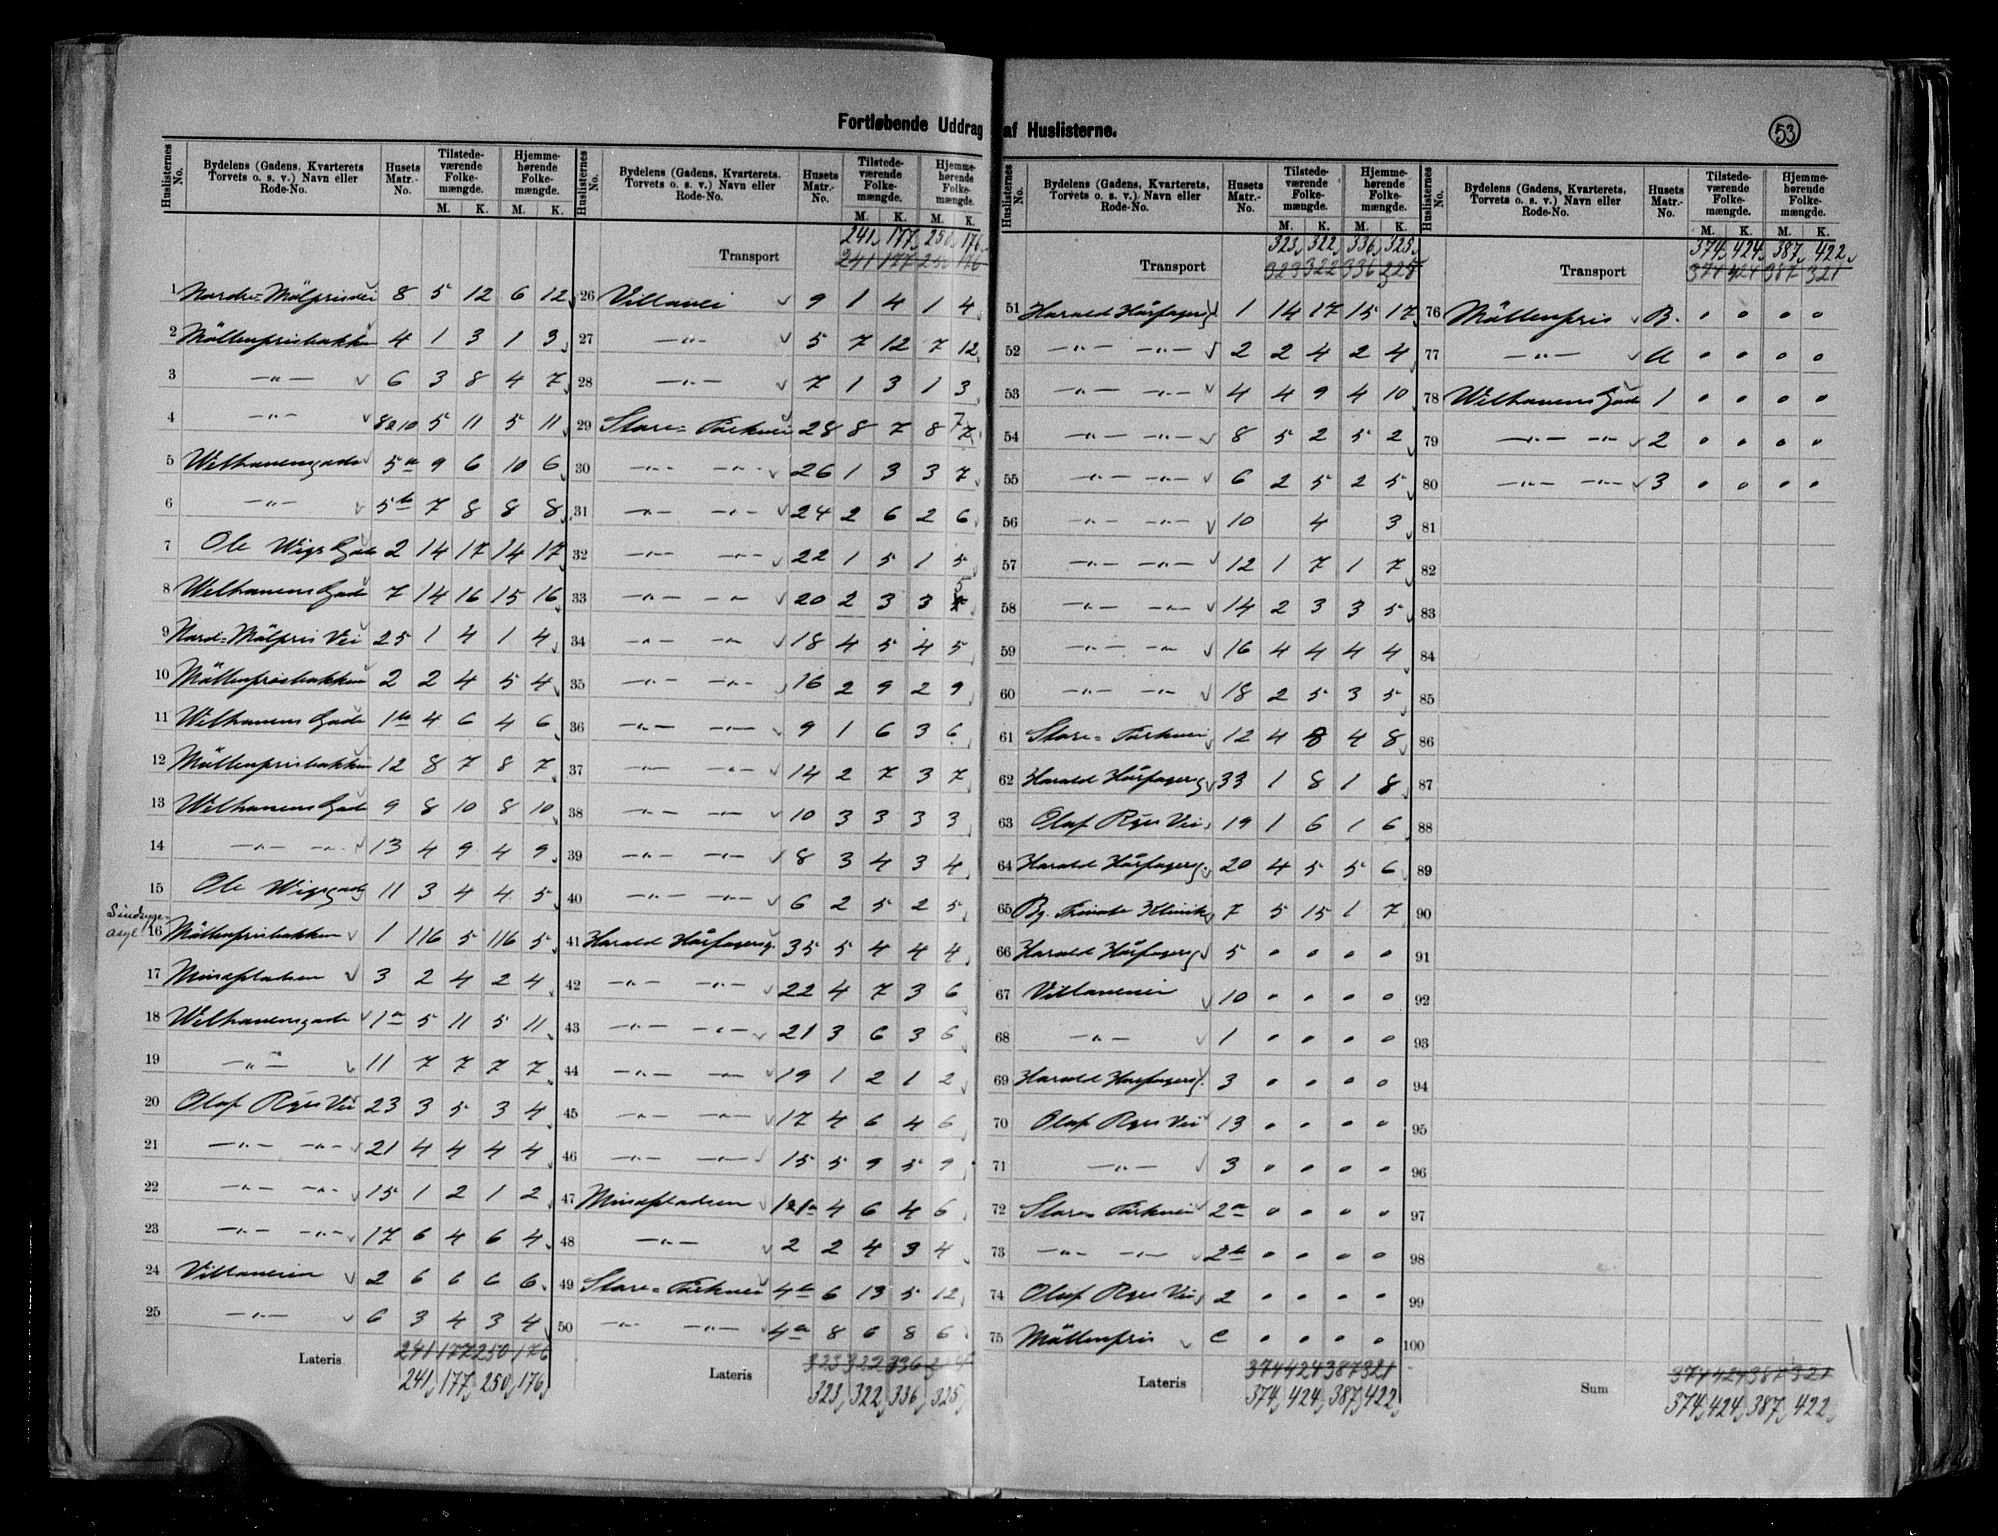 Fortløbende Uddrag af Huslisterne.
53
Huslisternes No. Bydelens (Gadens, Kvarterets Torvets o. s. v.) Navn eller Rode-No. Husets Matr.-No. Tilstedeværende Folkemængde. M. K. Hjemmehørende Folkemængde. M. K.
1 Nordre=Mölprisvei 8 5 12 6 12
2 Möllenprisbakken 4 1 3 1 3
3 —„— 6 3 8 4 7
4 —„— 8 a 10 5 11 5 11
5 Welhavensgade 5a 9 6 10 6
6 —„— 5b 7 8 8 8
7 Ole Wigs Gade 2 14 17 14 17
8 Welhavens Gade 7 14 16 15 16
9 Nord=Mölpris Vei 25 1 4 1 4
10 Möllenprisbakken 2 2 4 5 4
11 Welhavens Gade 1b 4 6 4 6
12 Möllenprisbakken 12 8 7 8 7
13 Welhavens Gade 9 8 10 8 10
14 —„— —„— 13 4 9 4 9
15 Ole Wigsgade 11 3 4 4 5
Sindsyge-asyl
16 Möllenprisbakken 1 116 5 116 5
17 Mindepladsen 3 2 4 2 4
18 Welhavensgade 1a 5 11 5 11
19 —„— 11 7 7 7 7
20 Olaf Ryes Vei 23 3 5 3 4
21 —„— —„— 21 4 4 4 4
22 —„— —„— 15 1 2 1 2
23 —„— —„— 17 6 4 6 4
24 Villaveien 2 6 6 6 6
25 —„— 6 3 4 3 4
Lateris 241 177 250 176
241 177 250 176
Huslisternes No. Bydelens (Gadens, Kvarterets, Torvets o. s. v.) Navn eller Rode-No. Husets Matr.-No. Tilstedeværende Folkemængde. M. K. Hjemmehørende Folkemængde. M. K.
241 177 250 176
Transport 241 177 250 176
26 Villavei 9 1 4 1 4
27 —„— 5 7 12 7 12
28 —„— 7 1 3 1 3
29 Store=Parkvei 28 8 7 8 7
30 —„— —„— 26 1 3 3 7
31 —„— —„— 24 2 6 2 6
32 —„— —„— 22 1 5 1 5
33 —„— —„— 20 2 3 3 5
34 —„— —„— 18 4 5 4 5
35 —„— —„— 16 2 9 2 9
36 —„— —„— 9 1 6 3 6
37 —„— —„— 14 2 7 3 7
38 —„— —„— 10 3 3 3 3
39 —„— —„— 8 3 4 3 4
40 —„— —„— 6 2 5 2 5
41 Harald Hårfagersg. 35 5 4 4 4
42 —„— —„— 22 4 7 3 6
43 —„— —„— 21 3 6 3 6
44 —„— —„— 19 1 2 1 2
45 —„— —„— 17 4 6 4 6
46 —„— —„— 15 5 9 5 9
47 Mindepladsen 1 & 1a 4 6 4 6
48 —„— 2 2 4 3 4
49 Store=Parkvei 4b 6 13 5 12
50 —„— —„— 4a 8 6 8 6
Lateris 323 322 336
323 322 336 325
Huslisternes No. Bydelens (Gadens, Kvarterets, Torvets o. s. v.) Navn eller Rode-No. Husets Matr.-No. Tilstedeværende Folkemængde. M. K. Hjemmehørende Folkemængde. M. K.
323 322 336 325
Transport 323 322 336
51 Harald Hårfagersg. 1 14 17 15 17
52 —„— —„— 2 2 4 2 4
53 —„— —„— 4 4 9 4 10
54 —„— —„— 8 5 2 5 2
55 —„— —„— 6 2 5 2 5
56 —„— —„— 10 4 3
57 —„— —„— 12 1 7 1 7
58 —„— —„— 14 2 3 3 5
59 —„— —„— 16 4 4 4 4
60 —„— —„— 18 2 5 3 5
61 Store=Parkvei 12 4 8 4 8
62 Harald Hårfagersg 33 1 8 1 8
63 Olaf Ryes Vei 19 1 6 1 6
64 Harald Hårfagersg. 20 4 5 5 6
65 Bg. Private Klinik 7 5 15 1 7
66 Harald Hårfagersg 5 0 0 0 0
67 Villaveien 10 0 0 0 0
68 —„— 1 0 0 0 0
69 Harald Hårfagersg. 3 0 0 0 0
70 Olaf Ryes Vei 13 0 0 0 0
71 —„— 3 0 0 0 0
72 Store=Parkvei 2a 0 0 0 0
73 —„— —„— 2b 0 0 0 0
74 Olaf Ryes Vei 2 0 0 0 0
75 Möllenpris C 0 0 0 0
Lateris 374 424 387 321
374 424 387 422
Huslisternes No. Bydelens (Gadens, Kvarterets, Torvets o. s. v.) Navn eller Rode-No. Husets Matr.-No. Tilstedeværende Folkemængde. M. K. Hjemmehørende Folkemængde. M. K.
374 424 387 422
Transport 374 424 387 321
76 Möllenpris B. 0 0 0 0
77 —„— A 0 0 0 0
78 Welhavens Gade 1 0 0 0 0
79 —„— —„— 2 0 0 0 0
80 —„— —„— 3 0 0 0 0
81
82
83
84
85
86
87
88
89
90
91
92
93
94
95
96
97
98
99
100
Sum 374 424 387 321
374 424 387 422